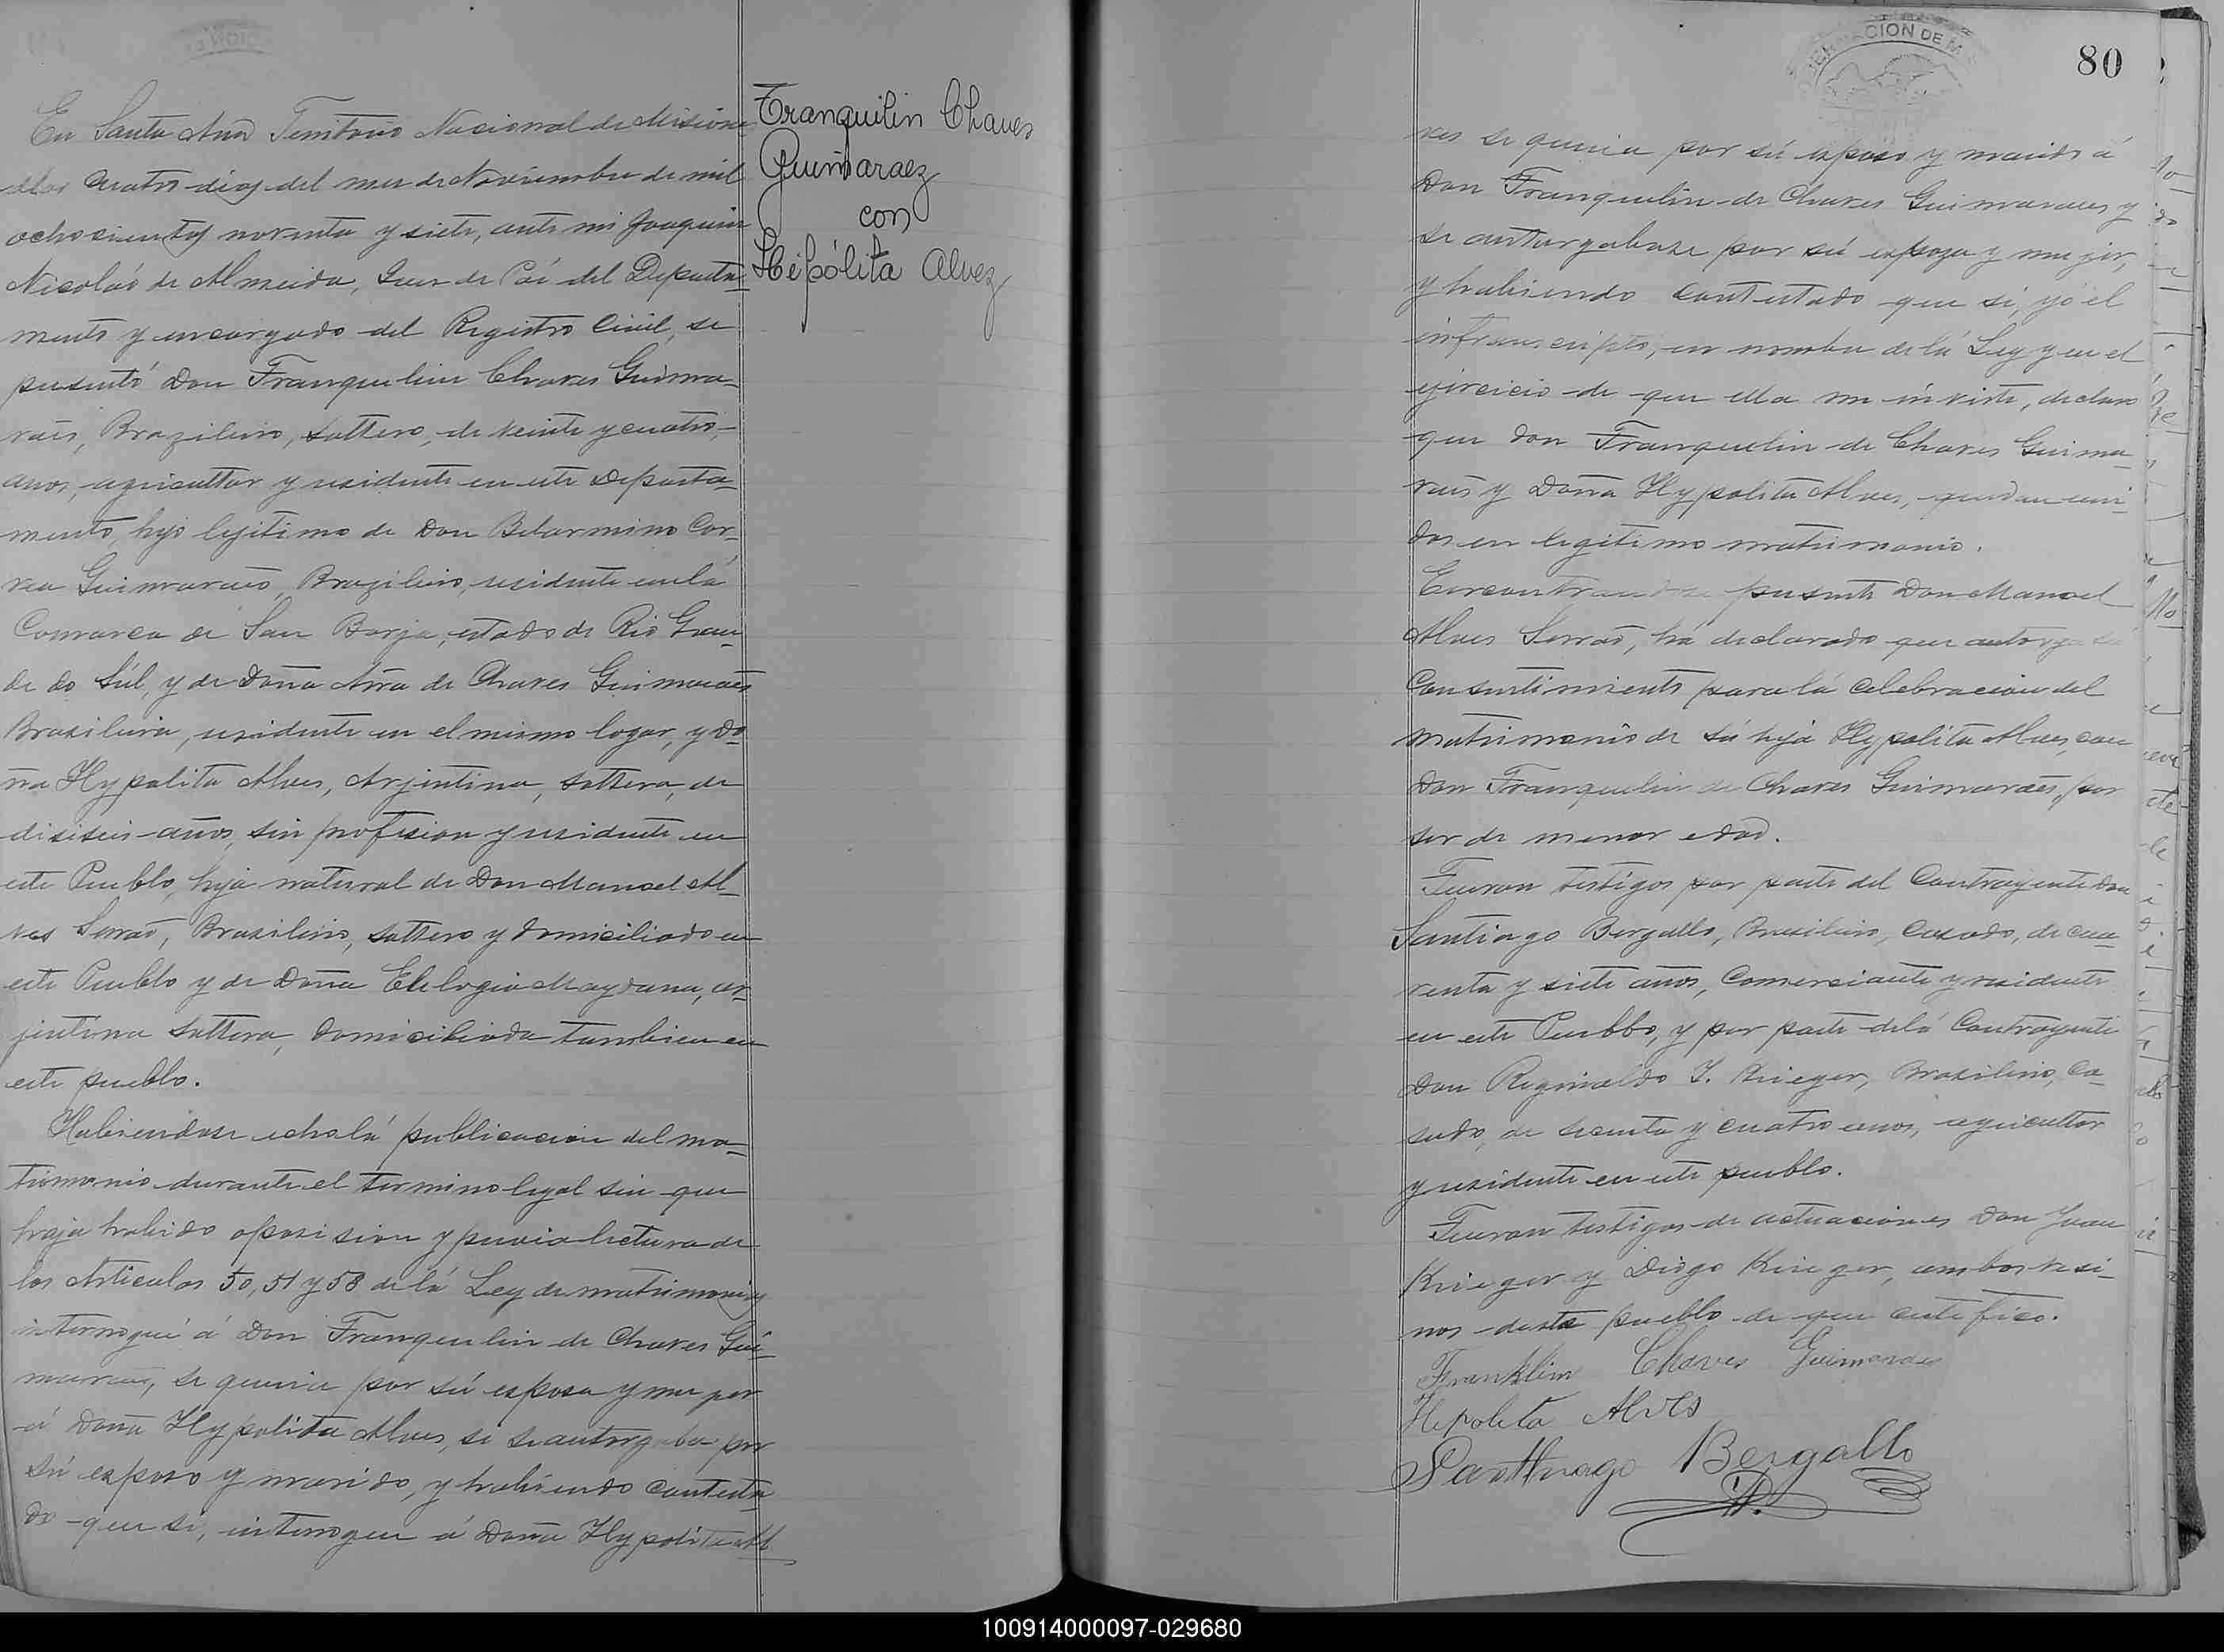 En Santa Ana Territorio Nacional de Misiones
a los cuatro dias del mes de Noviembre de mil
ochocientos noventa y siete, ante mi Joaquin
Nicoláo de Almeida, Juez de Paz del Departa-
mento y encargado del Registro Civil, se
presentó Don Franquelin Chaves Guima-
raẽs, Brazilero, soltero, de veinte y cuatro,
anos, agricultor y residente en este Departa-
mento, hijo lejitimo de Don Belarmino Cor-
rea Guimaraẽs, Brazilero, residente en la
Comarca de San Borja, estado de Rio Gran-
de do Súl, y de Doña Ana de Chaves Guimaraẽs
Brasilera, residente en el mismo logar, y Do-
ña Hypolita Alves, Arjentina, soltera, de
disiseis años, sin profesion y residente en
este Pueblo, hija natural de Don Manoel Al-
ves Serraõ, Brasilero, soltero y domiciliado en
este Pueblo y de Doña Elelogia Maydana, ar-
jentina soltera, domiciliada tambien en
este pueblo.
Habiendose echo lá publicacion del ma-
trimonio durante el termino legal sin que
haja habido oposision y previa lectura de
los Articulos 50, 51 y 58 de lá Ley de matrimonio
interrogué á Don Franquelin de Chaves Gui-
maraẽs, se queria por sú esposa y mujer
á Doña Hypolita Alves, si se autorgaba por
sú esposo y marido, y habiendo contesta-
do que si, interrogue á Doña Hypolita Al
Franquilin Chaves
Guimaraez
con
Hipólita Alvez
80
ves se queria por sú esposo y marido á
Don Franquelin de Chaves Guimaraes y
se autorgabase por sú espoza y mujer,
y habiendo contestado que si, yó el
infranscripto, en nombre de lá Ley y en el
ejercicio de que ella me inviste, declaro
que Don Franquelin de Chaves Guima-
raẽs y Doña Hypolita Alves, quedan uni-
dos en legitimo matrimonio.
Encontrandose presente Don Manoel
Alves Serraõ, há declarado que autorga sú
Consentimiento para lá celebracion del
matrimonio de sú hija Hypolita Alves, con
Don Franquelin de Chaves Guimaraẽs, por
ser de menor edad.
Fueron testigos por parte del Contrayente Don
Santiago Bergallo, Brasilero, casado, de cua-
renta y siete años, Comerciante y residente
en este Pueblo, y por parte de lá Contrayente
Don Reginaldo J. Krieger, Brasilero, Ca-
sado, de y cuatro anos, agricultor
y residente en este pueblo.
Fueron testigos de actuaciones Don Juan
Krieger y Diogo Krieger, ambos vesi-
nos deste pueblo de que certefico.
Franklim Chaves Guimaraes
Hipolita Alves
Santhiago Bergallo
100914000097-029680